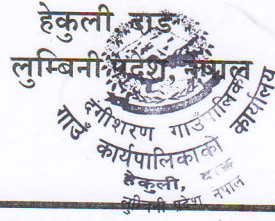 हेकुली दाङ
लुम्बिनी प्रदेश, नेपाल
दंगीशरण गाउँपालिका
गाउँ कार्यपालिकाको कार्यालय
हेकुली, दाङ
लुम्बिनी प्रदेश नेपाल